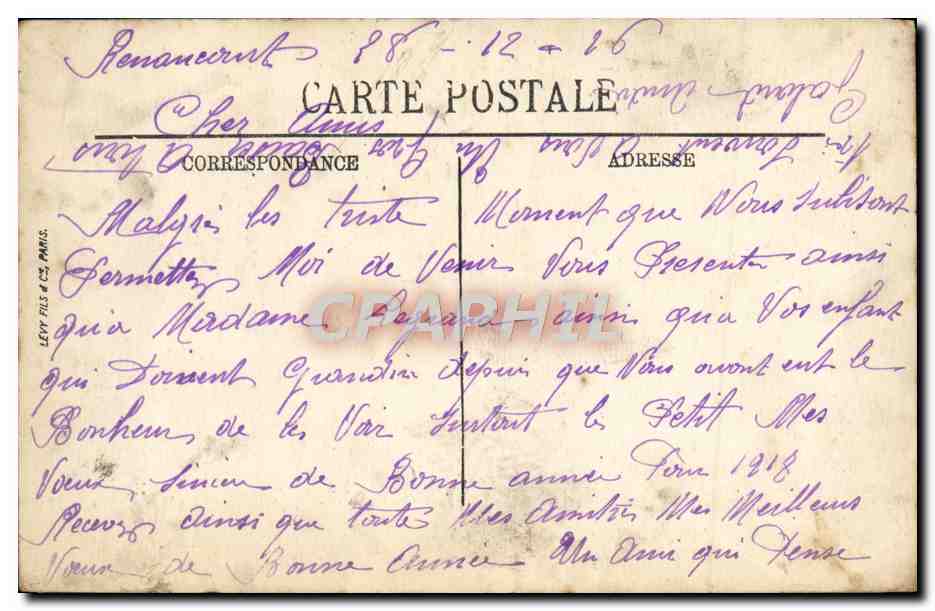 Renancourt 28 - 12 - 16
CARTE POSTALE
Cher Amis
CORRESPONDANCE
ADRESSE
Malgrés les triste Moment que Nous subisont
Permettez Moi de Venir Vous Presenter ainsi
qu'a Madame Legrand ainsi qu'a Vos enfant
qui Doivent Grandir depuis que Vous avont eut le
Bonheur de les Voir surtout le Petit Mes
Vœux sincere de Bonne année Pour 1918
Recevez ainsi que toute Mes Amitiés Mes Meilleurs
Vœux de Bonne Année Un Ami qui Pense
souvent a Vous
Galand
LEVY FILS & Cie, PARIS.
CPAPHIL